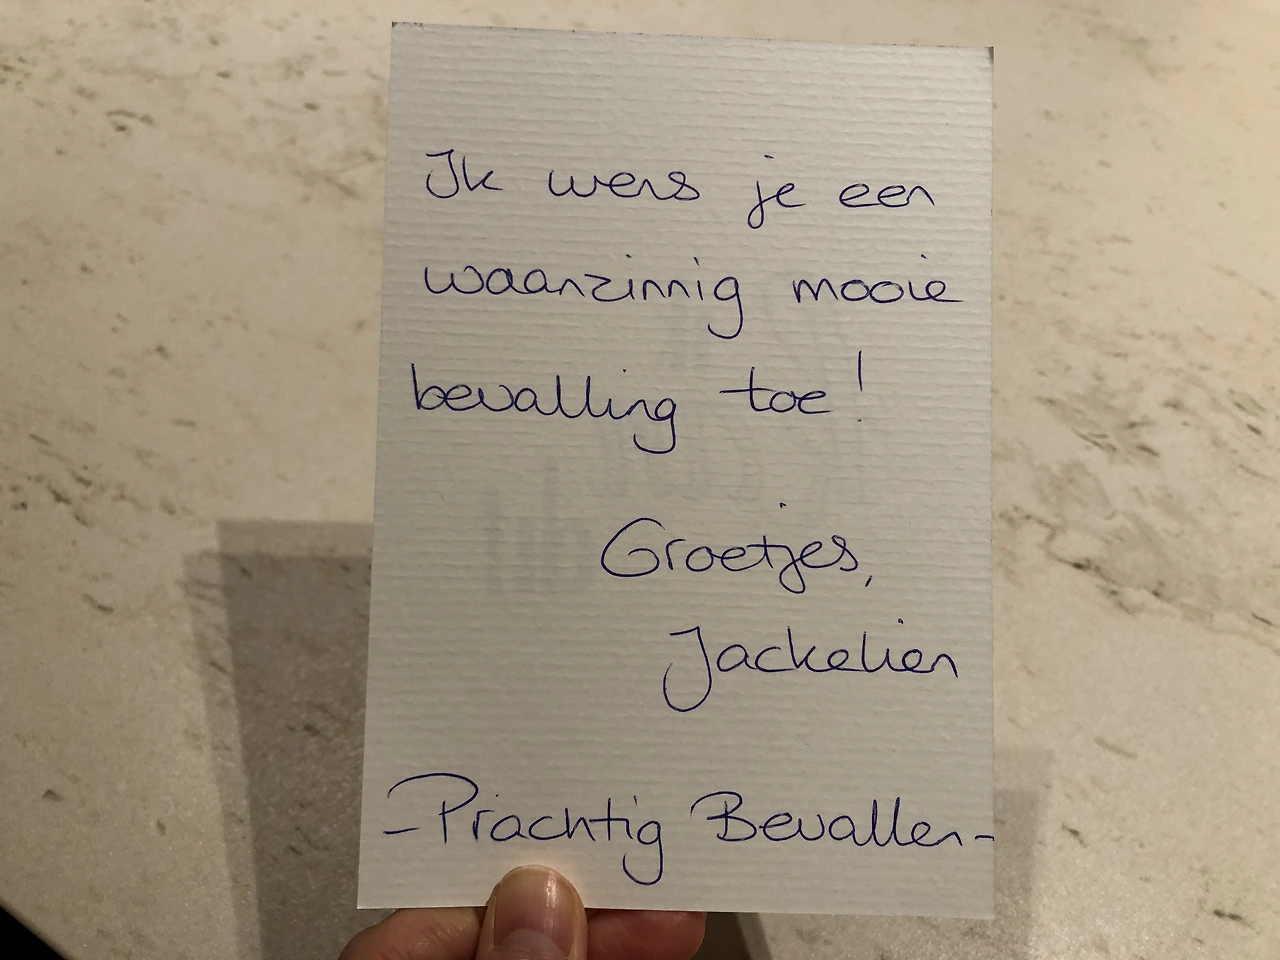 Ik wens je een
waanzinnig mooie
bevalling toe!
Groetjes,
Jackelien
-Prachtig Bevallen-